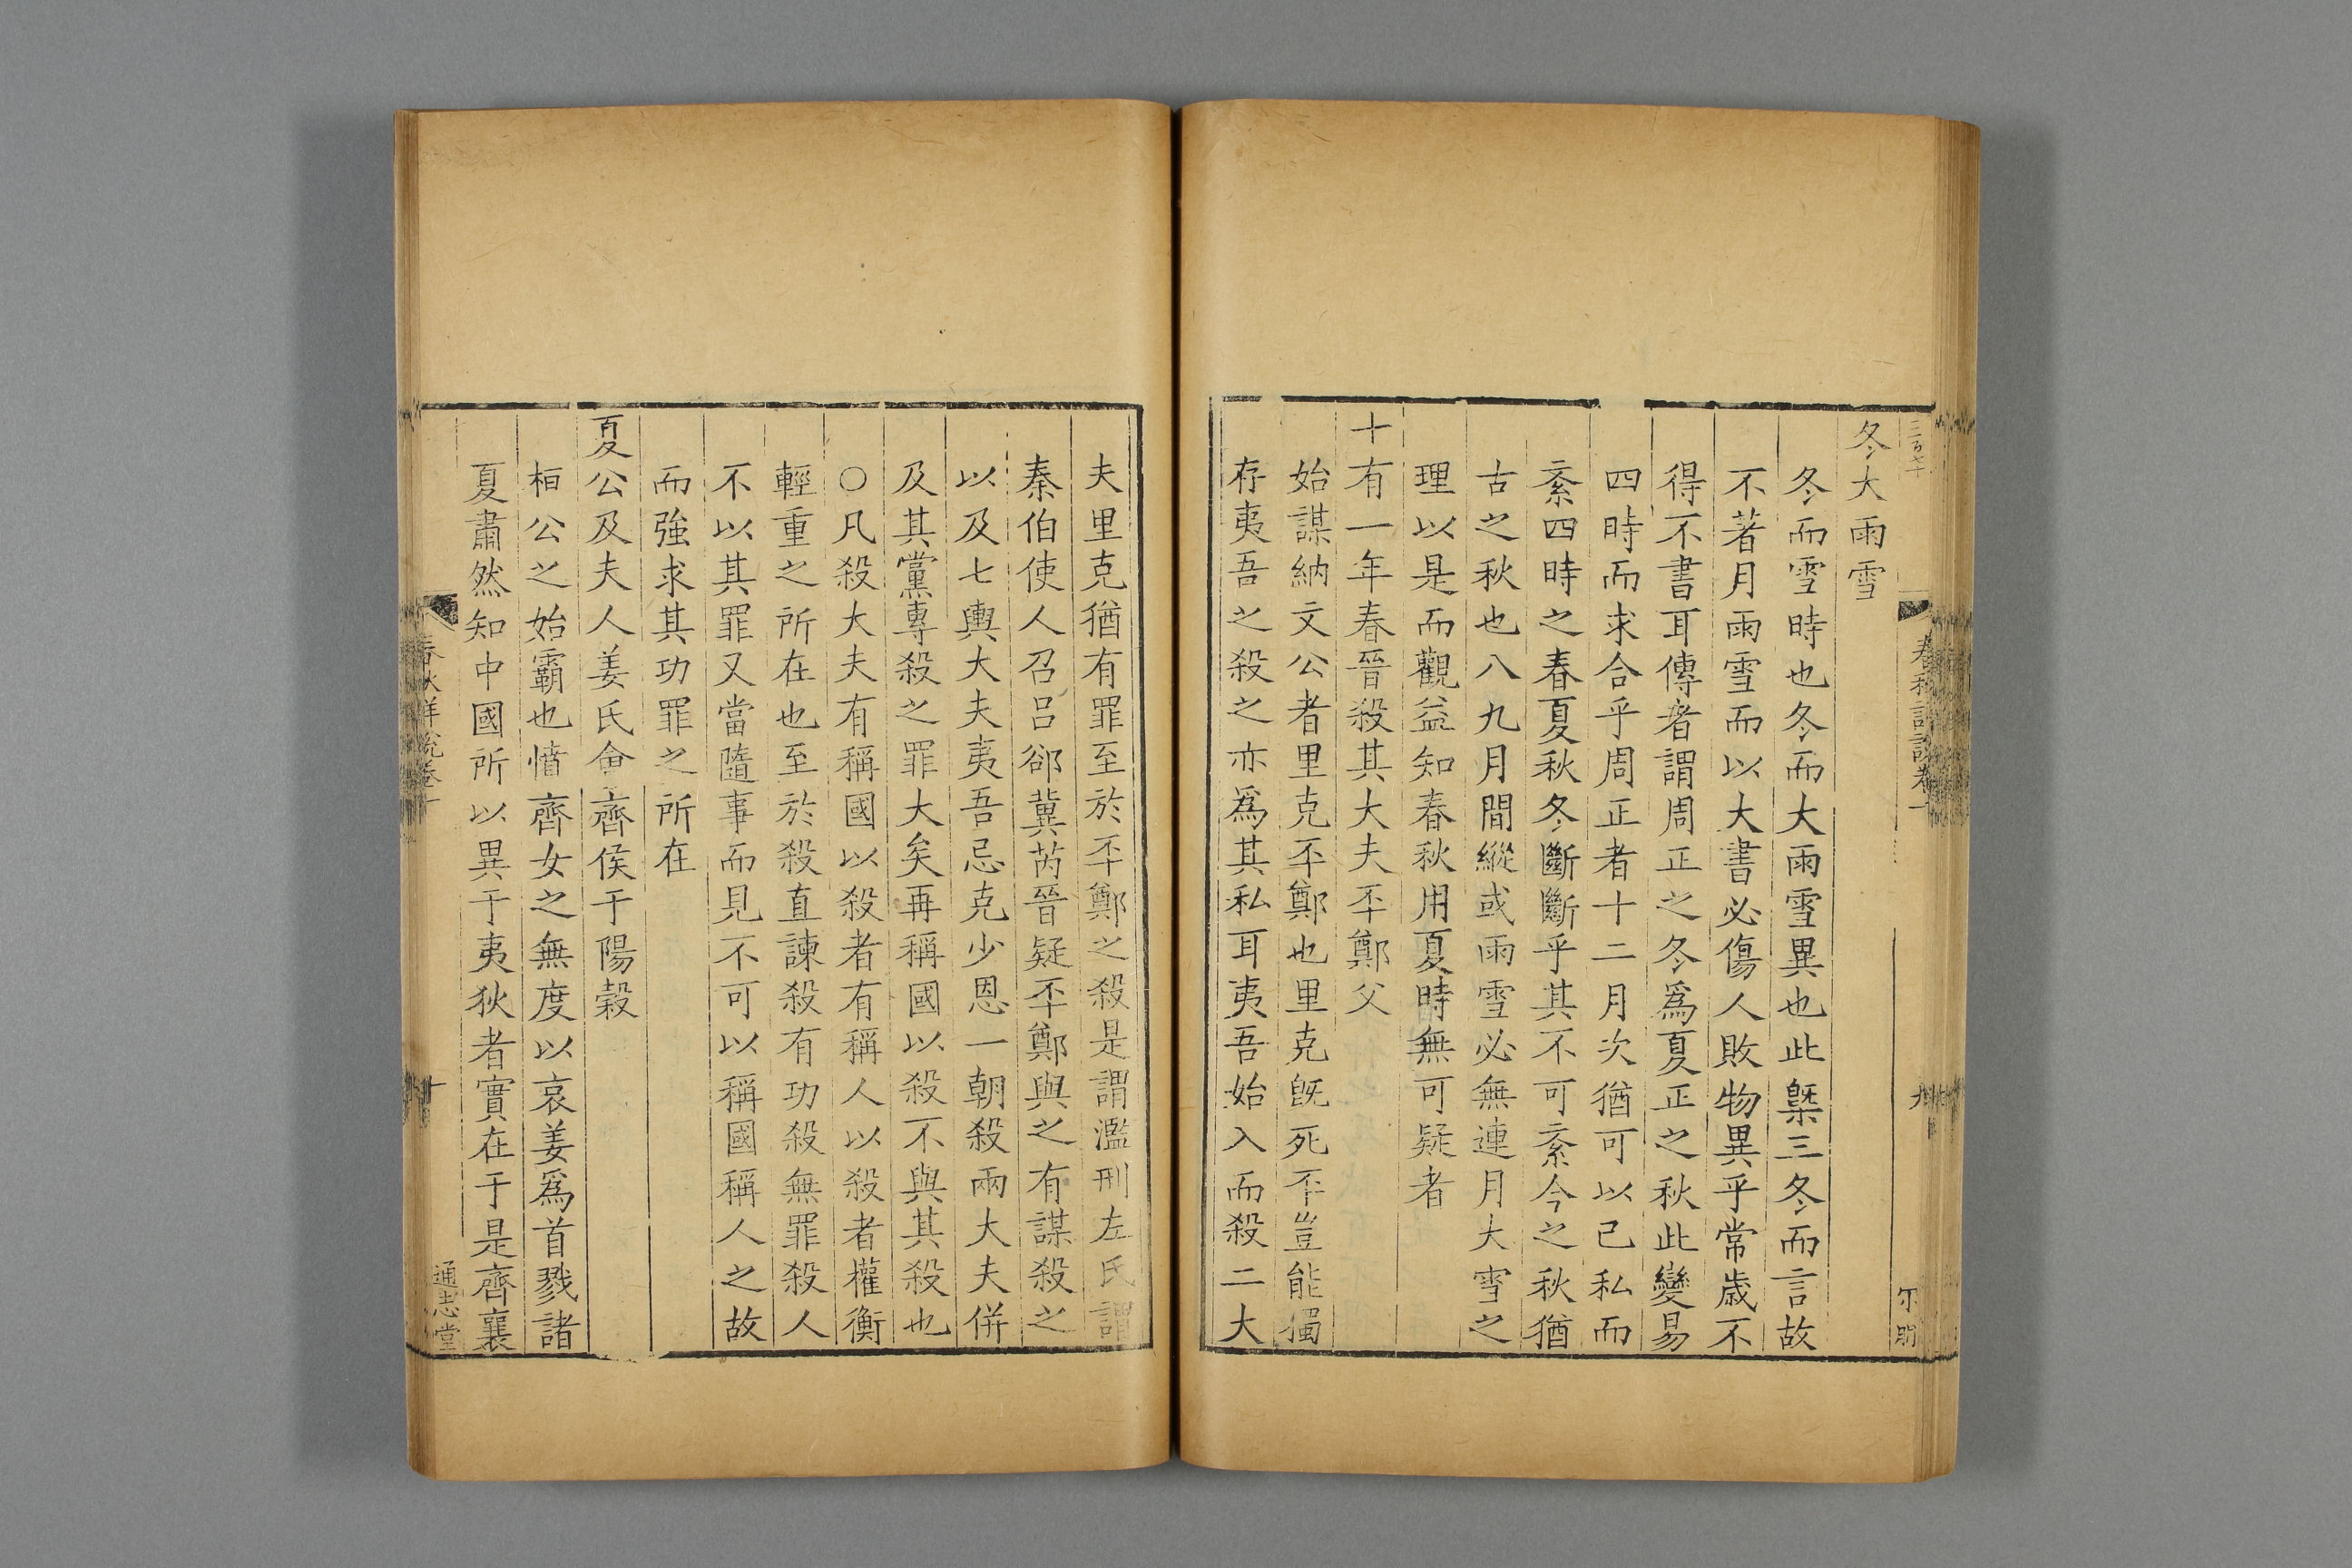 冬大雨雪
冬而雪時也冬而大雨雪異也此槩三冬而言故
不著月雨雪而以大書必傷人敗物異乎常歲不
得不書耳傳者謂周正之冬爲夏正之秋此變易
四時而求合乎周正者十二月次猶可以已私而
紊四時之春夏秋冬斷斷乎其不可紊今之秋猶
古之秋也八九月間縱或雨雪必無連月大雪之
理以是而觀益知春秋用夏時無可疑者
十有一年春晉殺其大夫㔻鄭父
始謀納文公者里克㔻鄭也里克旣死㔻豈能獨
存夷吾之殺之亦爲其私耳夷吾始入而殺二大
夫里克猶有罪至於㔻鄭之殺是謂濫刑左氏謂
秦伯使人召呂郤冀芮晉疑㔻鄭與之有謀殺之
以及七輿大夫夷吾忌克少恩一朝殺兩大夫併
及其黨專殺之罪大矣再稱國以殺不與其殺也
○凡殺大夫有稱國以殺者有稱人以殺者權衡
輕重之所在也至於殺直諫殺有功殺無罪殺人
不以其罪又當隨事而見不可以稱國稱人之故
而強求其功罪之所在
夏公及夫人姜氏會齊侯于陽穀
桓公之始霸也憤齊女之無度以哀姜爲首戮諸
夏肅然知中國所以異于夷狄者實在于是齊襄
春秋詳說卷十
十
通志堂